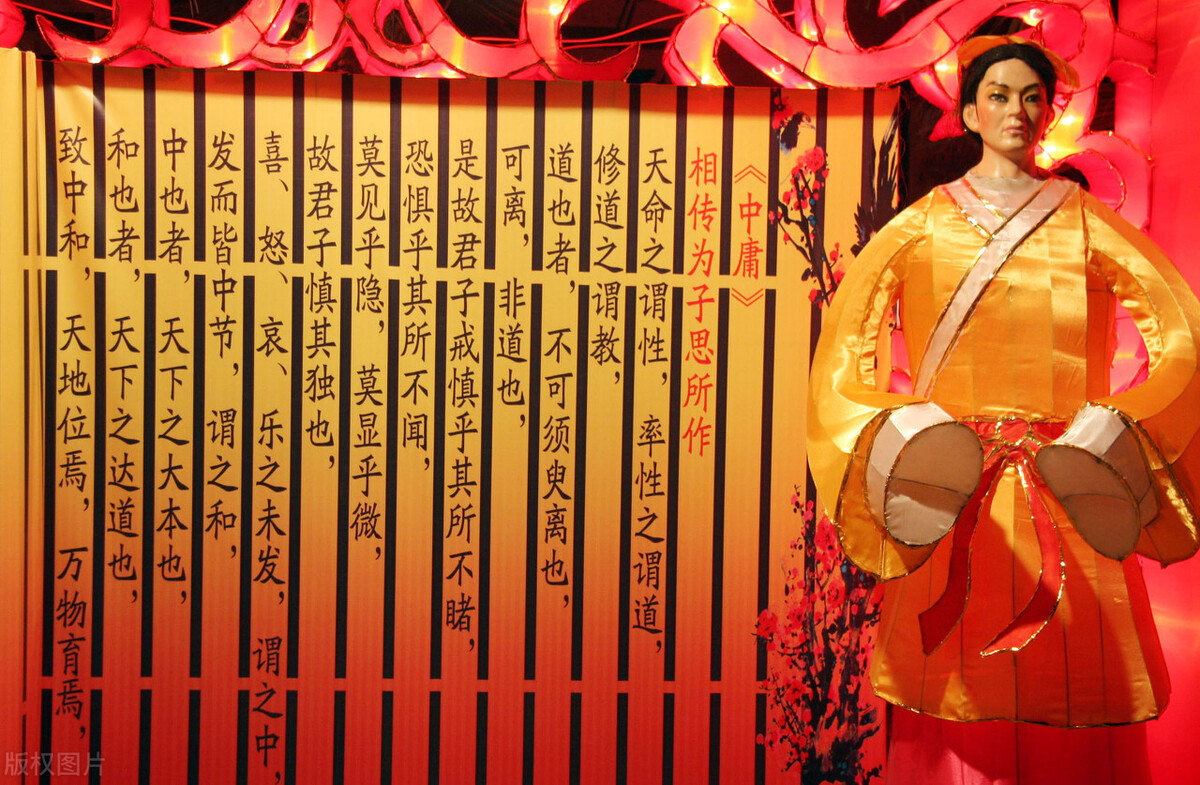 《中庸》
相传为子思所作
天命之谓性，率性之谓道，
修道之谓教，
道也者，不可须臾离也，
可离，非道也，
是故君子戒慎乎其所不睹，
恐惧乎其所不闻，
莫见乎隐，莫显乎微，
故君子慎其独也，
喜、怒、哀、乐之未发，谓之中，
发而皆中节，谓之和，
中也者，天下之大本也，
和也者，天下之达道也，
致中和，天地位焉，万物育焉，
版权图片